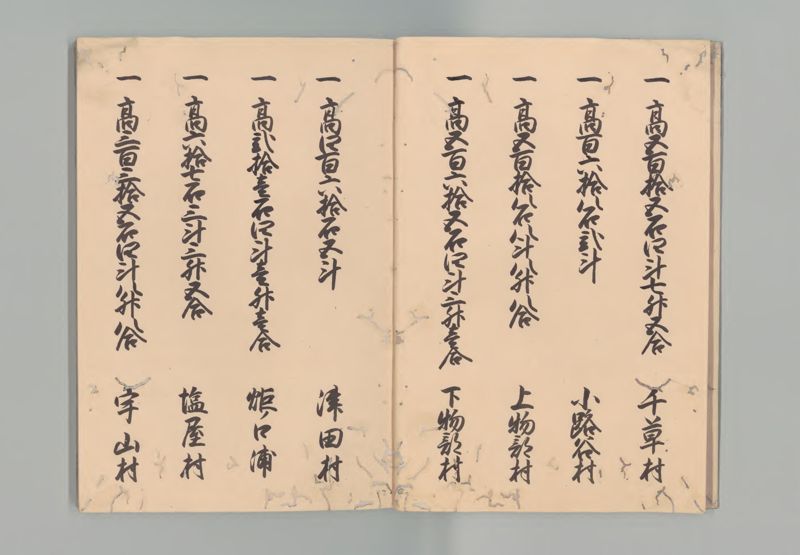 一 高五百拾五石四斗七升五合 千草村
一 高百六拾八石弐斗 小路谷村
一 高五百拾八石八斗八升八合 上物部村
一 高五百六拾五石四斗三升壱合 下物部村
一 高四百六拾石五斗 津田村
一 高弐拾壱石四斗壱升壱合 炬口浦
一 高六拾七石三斗三升五合 塩屋村
一 高三百三拾五石四斗八升八合 宇山村